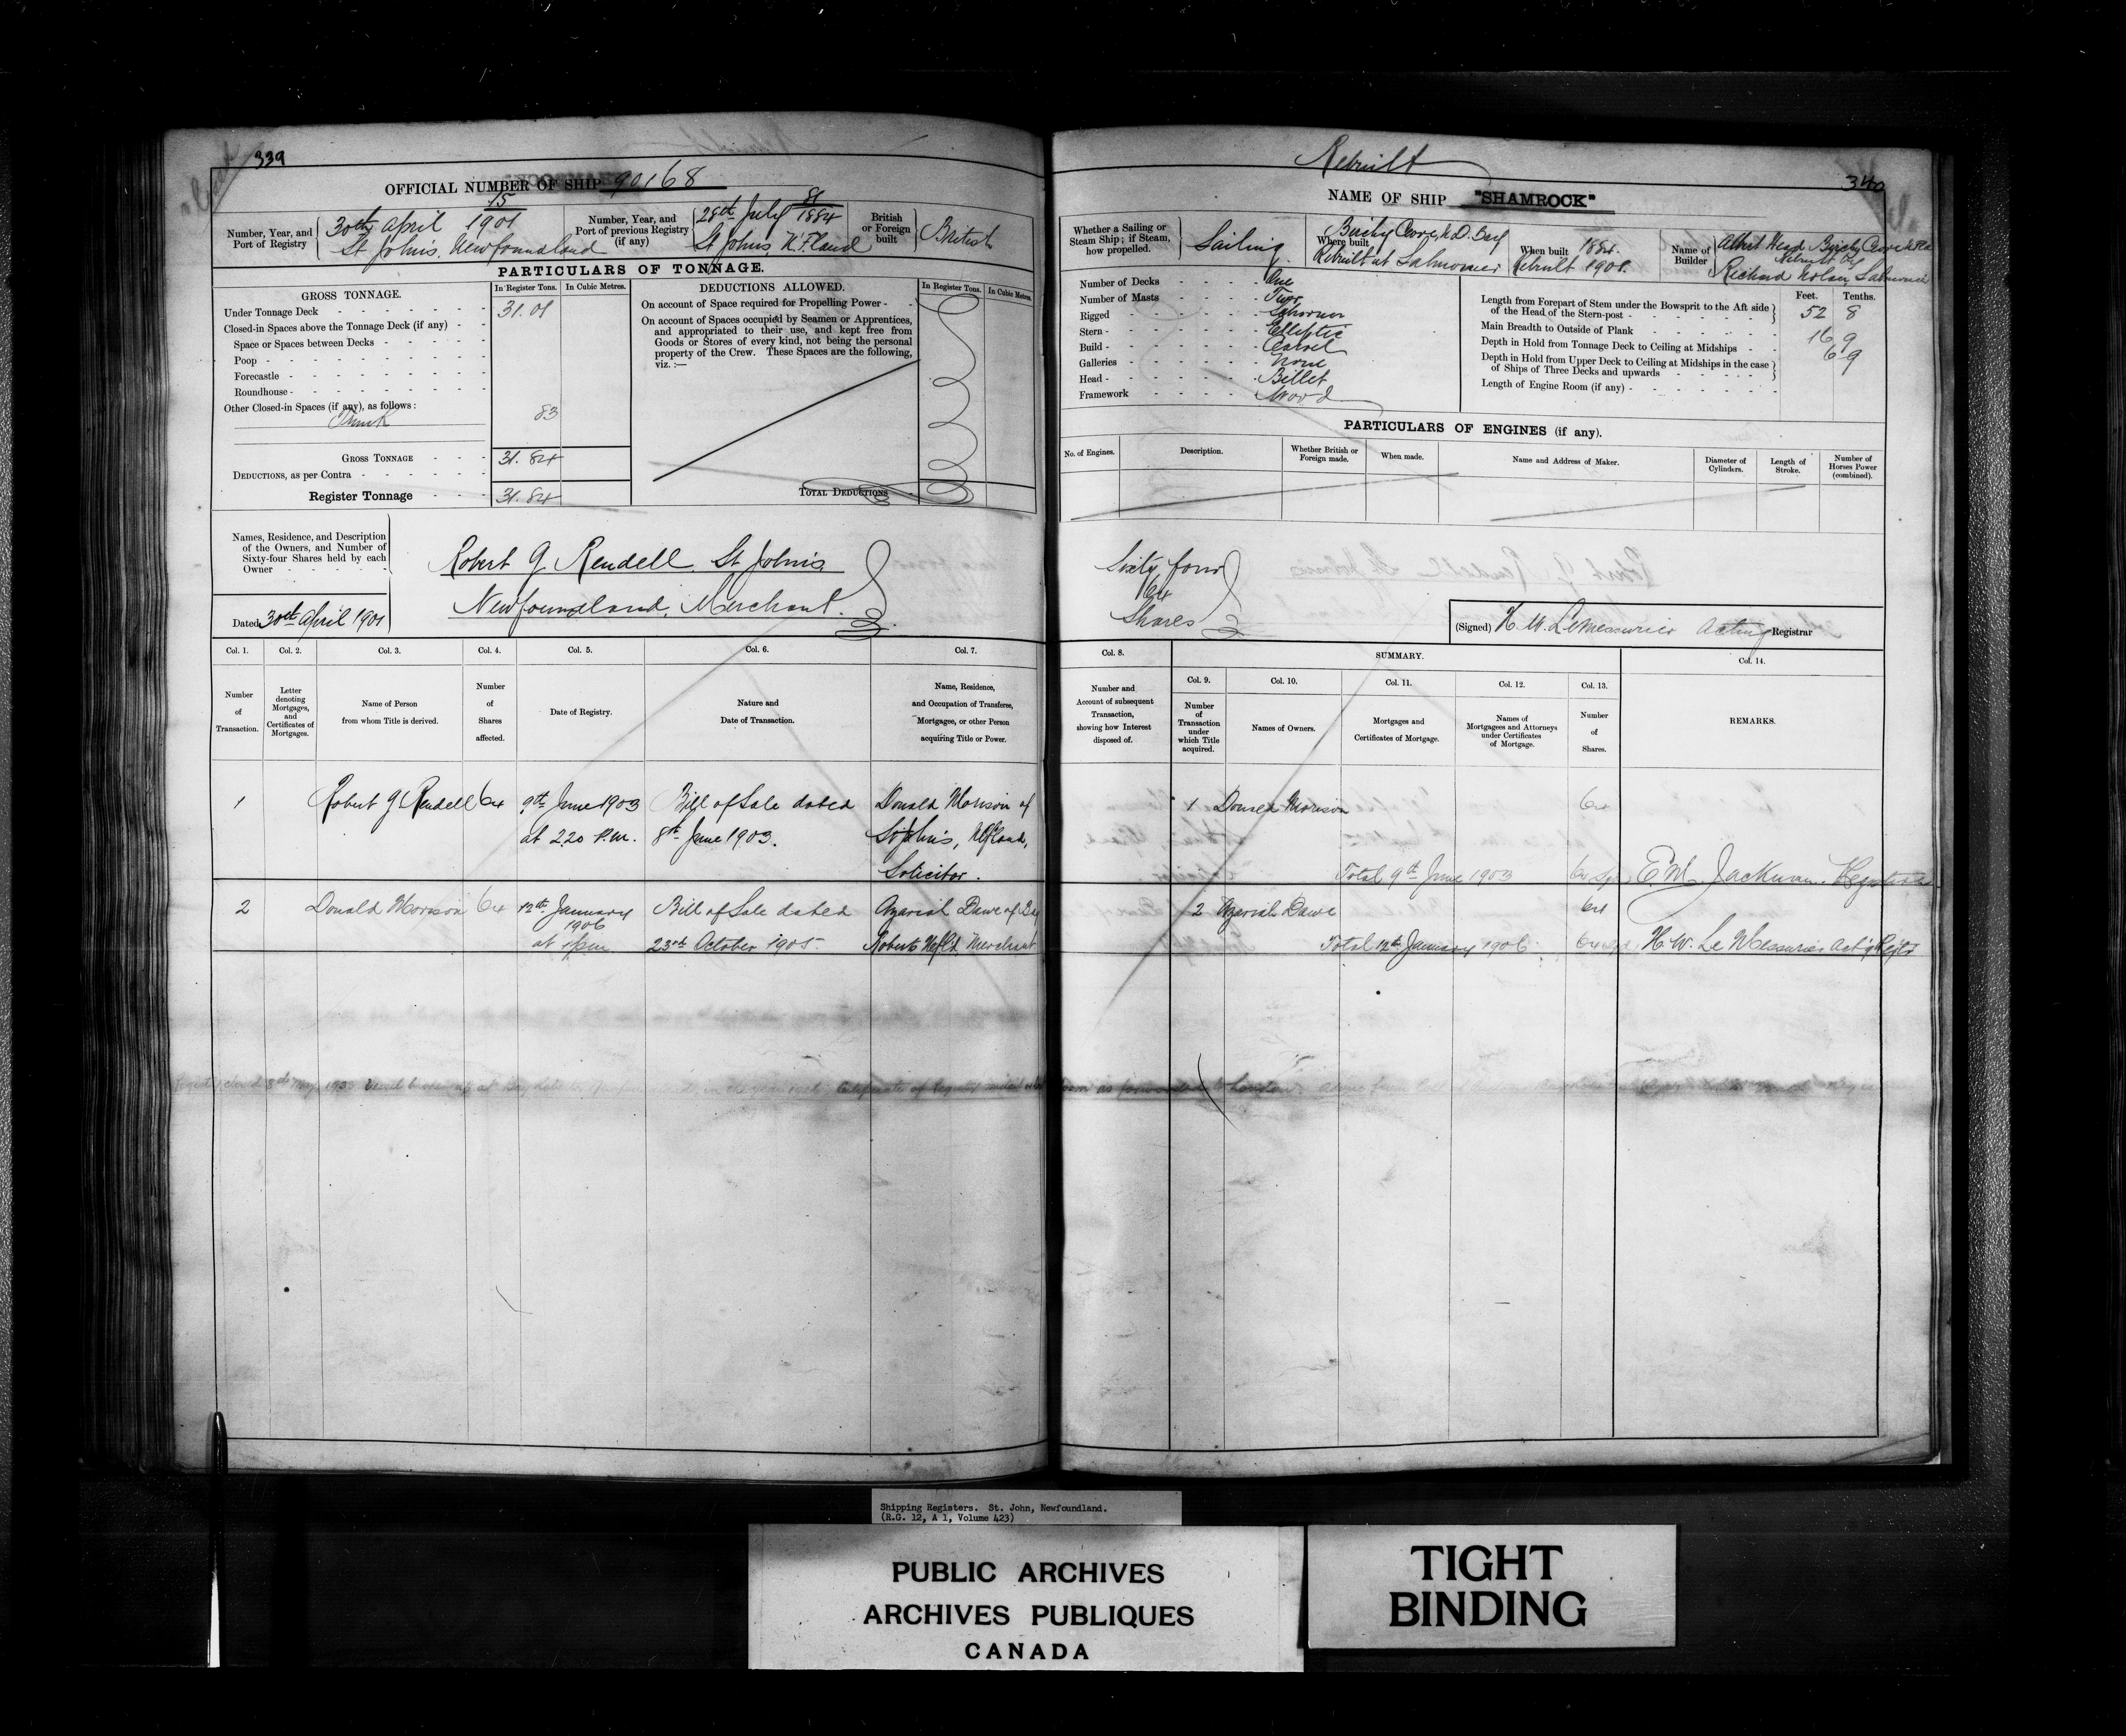 339
OFFICIAL NUMBER OF SHIP 90168
Number, Year, and Port of Registry
15
30th April 1901
St John's, Newfoundland
Number, Year, and Port of previous Registry (if any)
81
28th July 1884
St Johns, N'F.land
British or Foreign built
British
PARTICULARS OF TONNAGE.
GROSS TONNAGE.
In Register Tons.
In Cubic Metres.
Under Tonnage Deck 31.01
Closed-in Spaces above the Tonnage Deck (if any)
Space or Spaces between Decks
Poop
Forecastle
Roundhouse
Other Closed-in Spaces (if any), as follows:
Trunk 83
GROSS TONNAGE 31.84
DEDUCTIONS, as per Contra
Register Tonnage 31.84
DEDUCTIONS ALLOWED.
In Register Tons.
In Cubic Metres.
On account of Space required for Propelling Power
On account of Spaces occupied by Seamen or Apprentices,
and appropriated to their use, and kept free from
Goods or Stores of every kind, not being the personal
property of the Crew. These Spaces are the following,
viz. :—
TOTAL DEDUCTIONS
Names, Residence, and Description
of the Owners, and Number of
Sixty-four Shares held by each
Owner
Robert G Rendell, St John's
Newfoundland, Merchant.
Dated 30th April 1901
Col. 1.
Col. 2.
Col. 3.
Col. 4.
Col. 5.
Col. 6.
Col. 7.
Number of Transaction.
Letter denoting Mortgages, and Certificates of Mortgages.
Name of Person from whom Title is derived.
Number of Shares affected.
Date of Registry.
Nature and Date of Transaction.
Name, Residence, and Occupation of Transferee, Mortgagee, or other Person acquiring Title or Power.
1 Robert G Rendell 64 9th June 1903 Bill of Sale dated Donald Morison of
at 2.20 P.M. 8th June 1903. St John's, Nfland,
Solicitor.
2 Donald Morison 64 12th January Bill of Sale dated Azariah Dawe of Bay
1906
at 23rd October 1905. Roberts Nfld, Merchant
Rebuilt
340
NAME OF SHIP "SHAMROCK"
Whether a Sailing or Steam Ship; if Steam, how propelled.
Sailing
Where built
Birchy Cove, N.D. Bay
Rebuilt at Salmonier
When built 1884.
Rebuilt 1901.
Name of Builder
Albert Head Birchy Cove
Rebuilt by
Richard Nolan, Salmonier
Number of Decks One
Number of Masts Two
Rigged Schooner
Stern Elliptic
Build Carvel
Galleries None
Head Billet
Framework Wood
Feet. Tenths.
Length from Forepart of Stem under the Bowsprit to the Aft side
of the Head of the Stern-post 52 8
Main Breadth to Outside of Plank 16 9
Depth in Hold from Tonnage Deck to Ceiling at Midships 6 9
Depth in Hold from Upper Deck to Ceiling at Midships in the case
of Ships of Three Decks and upwards
Length of Engine Room (if any)
PARTICULARS OF ENGINES (if any).
No. of Engines.
Description.
Whether British or Foreign made.
When made.
Name and Address of Maker.
Diameter of Cylinders.
Length of Stroke.
Number of Horses Power (combined).
Sixty four
64
Shares
(Signed) H. W. LeMessurier Acting Registrar
Col. 8.
SUMMARY.
Col. 9.
Col. 10.
Col. 11.
Col. 12.
Col. 13.
Col. 14.
Number and Account of subsequent Transaction, showing how Interest disposed of.
Number of Transaction under which Title acquired.
Names of Owners.
Mortgages and Certificates of Mortgage.
Names of Mortgagees and Attorneys under Certificates of Mortgage.
Number of Shares.
REMARKS.
1 Donald Morison 64
Total 9th June 1903 64 E. M. Jackman. Registrar
2 Azariah Dawe 64
Total 12th January 1906 64 H. W. Le Messurier Act'g Regtr
Shipping Registers. St. John, Newfoundland.
(R.G. 12, A 1, Volume 423)
PUBLIC ARCHIVES
ARCHIVES PUBLIQUES
CANADA
TIGHT
BINDING